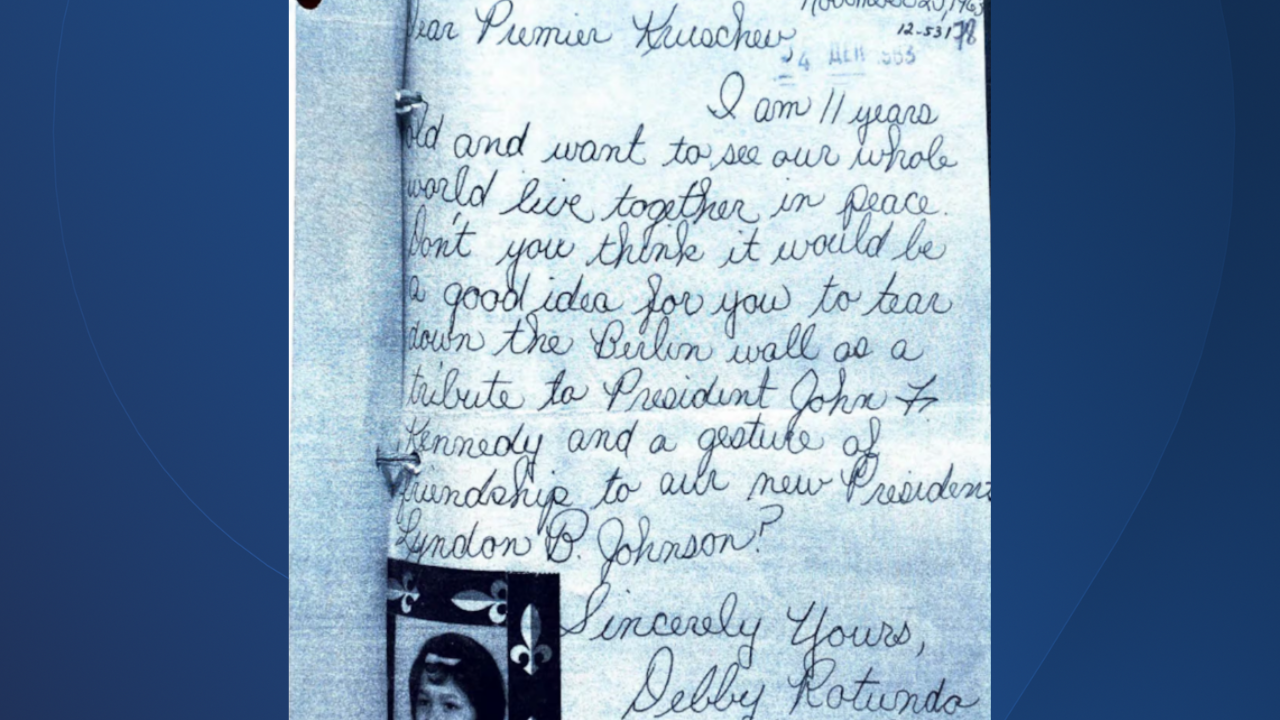 November 1963
Dear Premier Kruschev
12-53178
I am 11 years
old and want to see our whole
world live together in peace.
Don't you think it would be
a good idea for you to tear
down the Berlin wall as a
tribute to President John F.
Kennedy and a gesture of
friendship to our new President
Lyndon B. Johnson?
Sincerely Yours,
Debby Rotundo